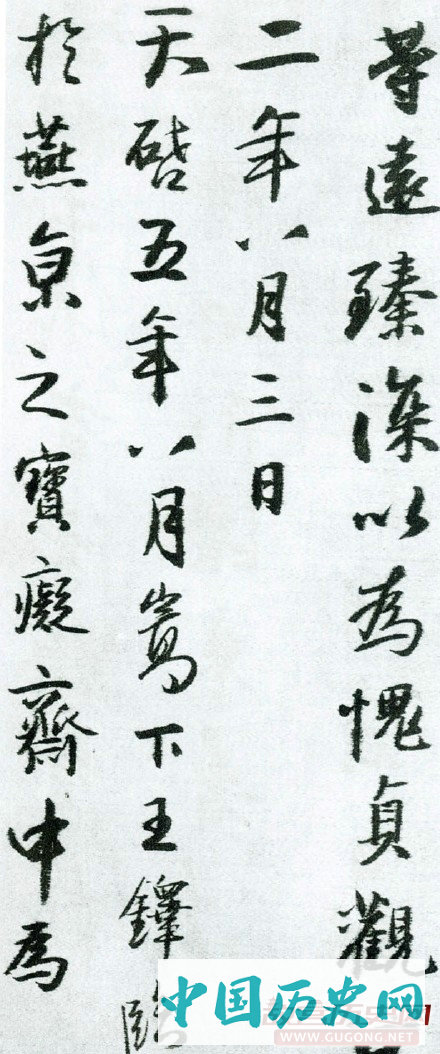 等遠臻深以為愧貞觀
二年八月三日
天啓五年八月嵩下王鐸臨
於燕京之寶癡齋中為
中国历史网
www.GUGONG.NET